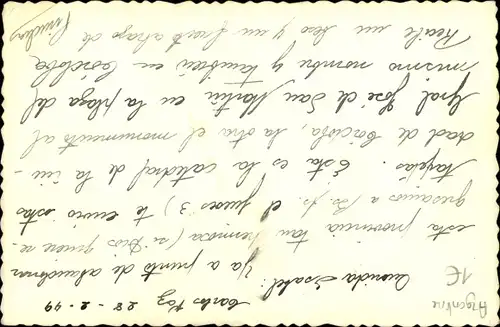 Carlos Paz 28-2-49
Querida Isabel: Ya a punto de abandonar
esta provincia tan hermosa (si Dios quiere re-
gresamos a Bs. As. el jueves 3) te envío estas
tarjetas. Esta es la catedral de la ciu-
dad de Córdoba, la otra el monumento al
Gral José de San Martín en la plaza del
mismo nombre y también en Córdoba
Recibe un beso y un fuerte abrazo de
Argentine
1€